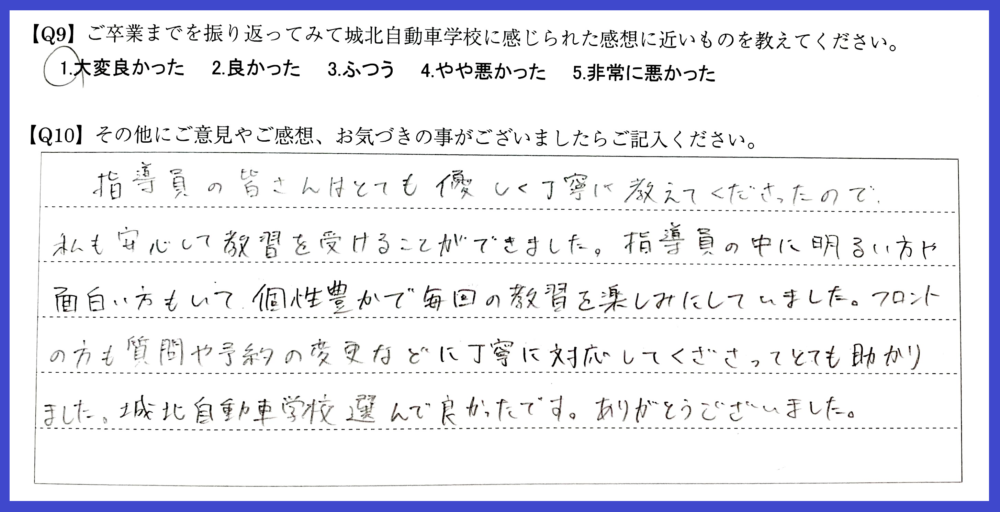 【Q9】ご卒業までを振り返ってみて城北自動車学校に感じられた感想に近いものを教えてください。
1.大変良かった 2.良かった 3.ふつう 4.やや悪かった 5.非常に悪かった
【Q10】その他にご意見やご感想、お気づきの事がございましたらご記入ください。
指導員の皆さんはとても優しく丁寧に教えてくださったので、
私も安心して教習を受けることができました。指導員の中に明るい方や
面白い方もいて、個性豊かで毎回の教習を楽しみにしていました。フロント
の方も質問や予約の変更などに丁寧に対応してくださってとても助かり
ました。城北自動車学校選んで良かったです。ありがとうございました。